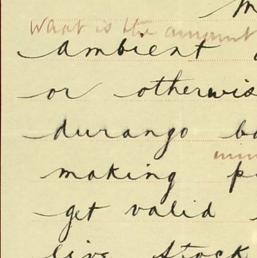 What is the amount
ambient
or otherwis
durango bo
making p
get valid
live stock